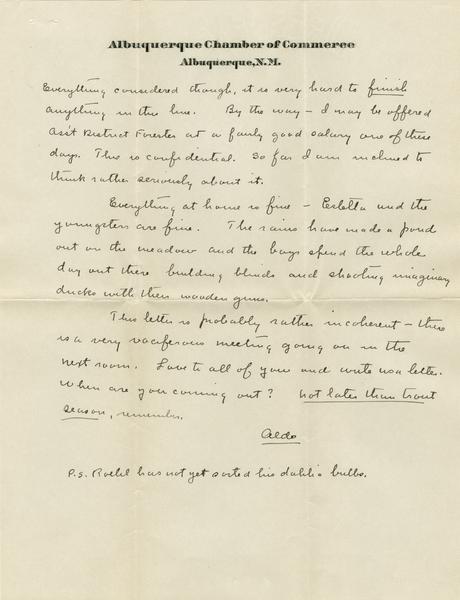 Albuquerque Chamber of Commerce
Albuquerque, N.M.
Everything considered though, it is very hard to finish
anything in this line. By the way – I may be offered
Ass't District Forester at a fairly good salary one of these
days. This is confidential. So far I am inclined to
think rather seriously about it.
Everything at home is fine – Estella and the
youngsters are fine. The rains have made a pond
out on the meadow and the boys spend the whole
day out there building blinds and shooting imaginary
ducks with their wooden guns.
This letter is probably rather incoherent – there
is a very vociferous meeting going on in the
next room. Love to all of you and write us a letter.
When are you coming out? Not later than trout
season, remember.
Aldo
P.S. Roehl has not yet sorted his dahlia bulbs.